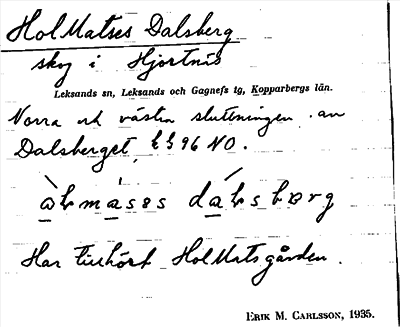 Hol Matses Dalsberg
skog i Hjortnäs
Leksands sn, Leksands och Gagnefs tg, Kopparbergs län.
Norra och västra sluttningen av
Dalsberget 96 NO.
Har tillhört Hol Mats gården.
ERIK M. CARLSSON, 1935.